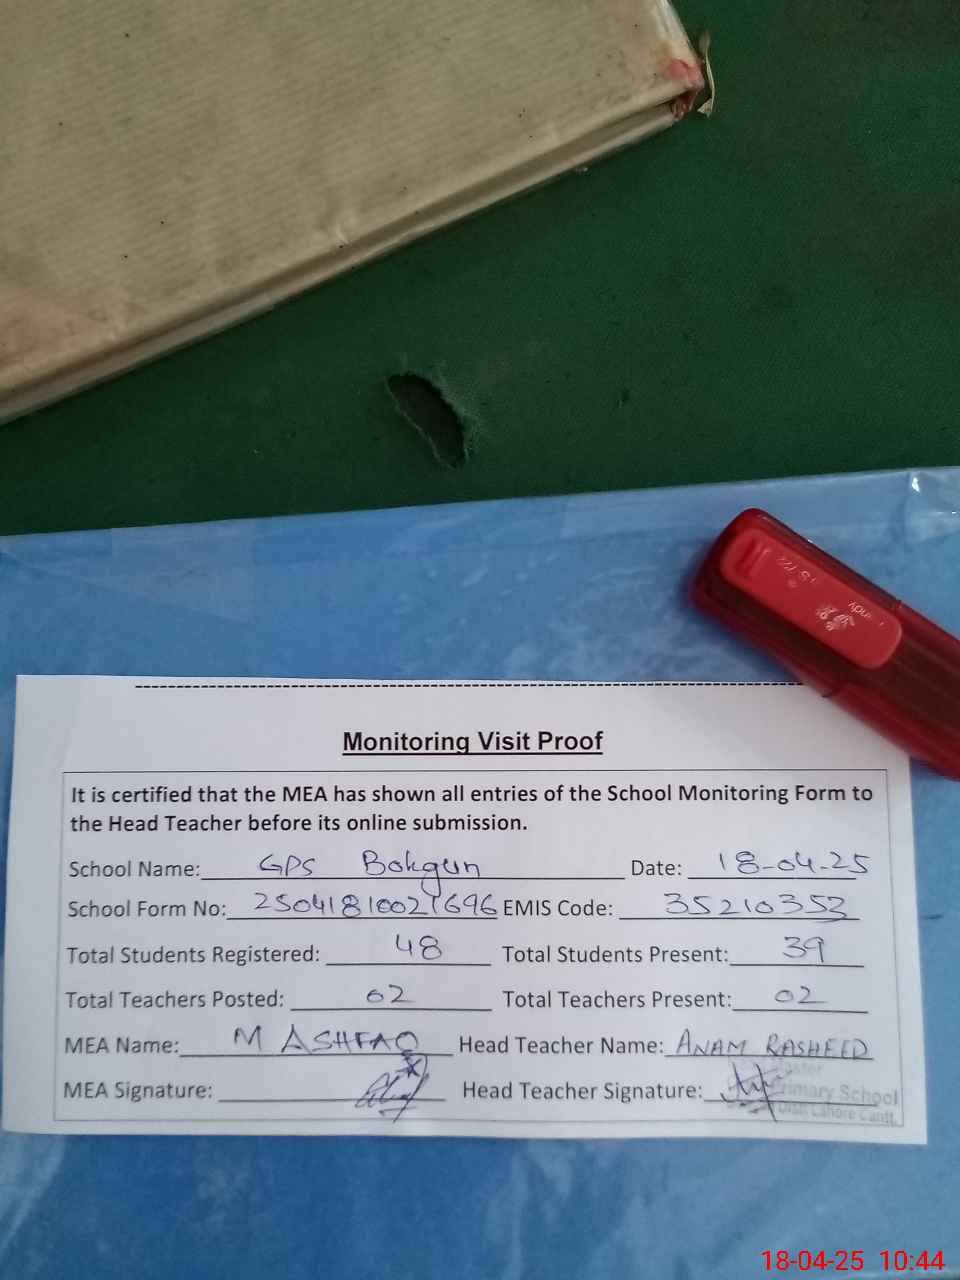 Monitoring Visit Proof
It is certified that the MEA has shown all entries of the School Monitoring Form to
the Head Teacher before its online submission.
School Name: GPS Bohgun Date: 18-04-25
School Form No: 25041810021696 EMIS Code: 35210353
Total Students Registered: 48 Total Students Present: 39
Total Teachers Posted: 02 Total Teachers Present: 02
MEA Name: M ASHFAQ Head Teacher Name: ANAM RASHEED
MEA Signature: Head Teacher Signature:
Master
Primary School
Lahore Cantt.
18-04-25 10:44